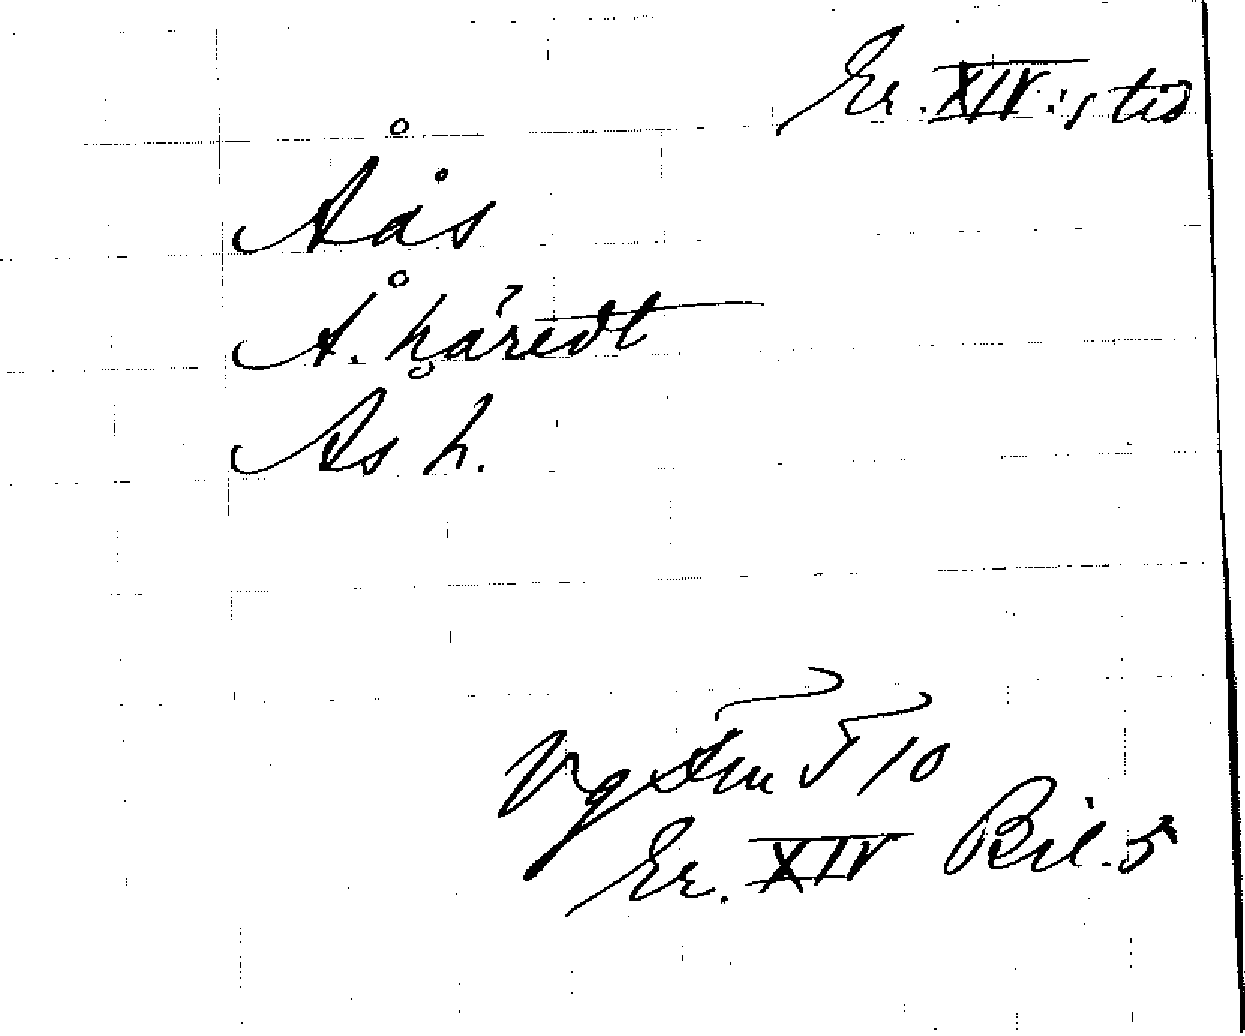 Er. XIV:s tid
Åås
Å. håredt
Ås h.
Vg 10
Er. XIV Bil. 5